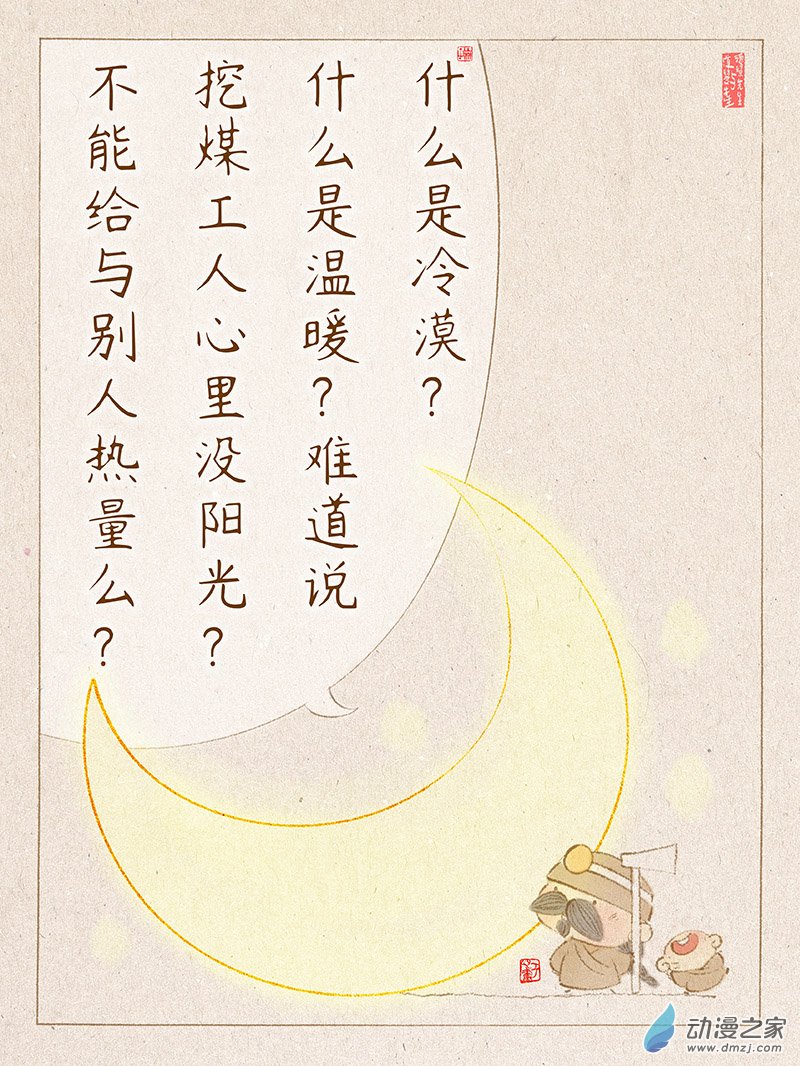 什么是冷漠?
什么是温暖?难道说
挖煤工人心里没阳光?
不能给与别人热量么?
动漫之家
www.dmzj.com